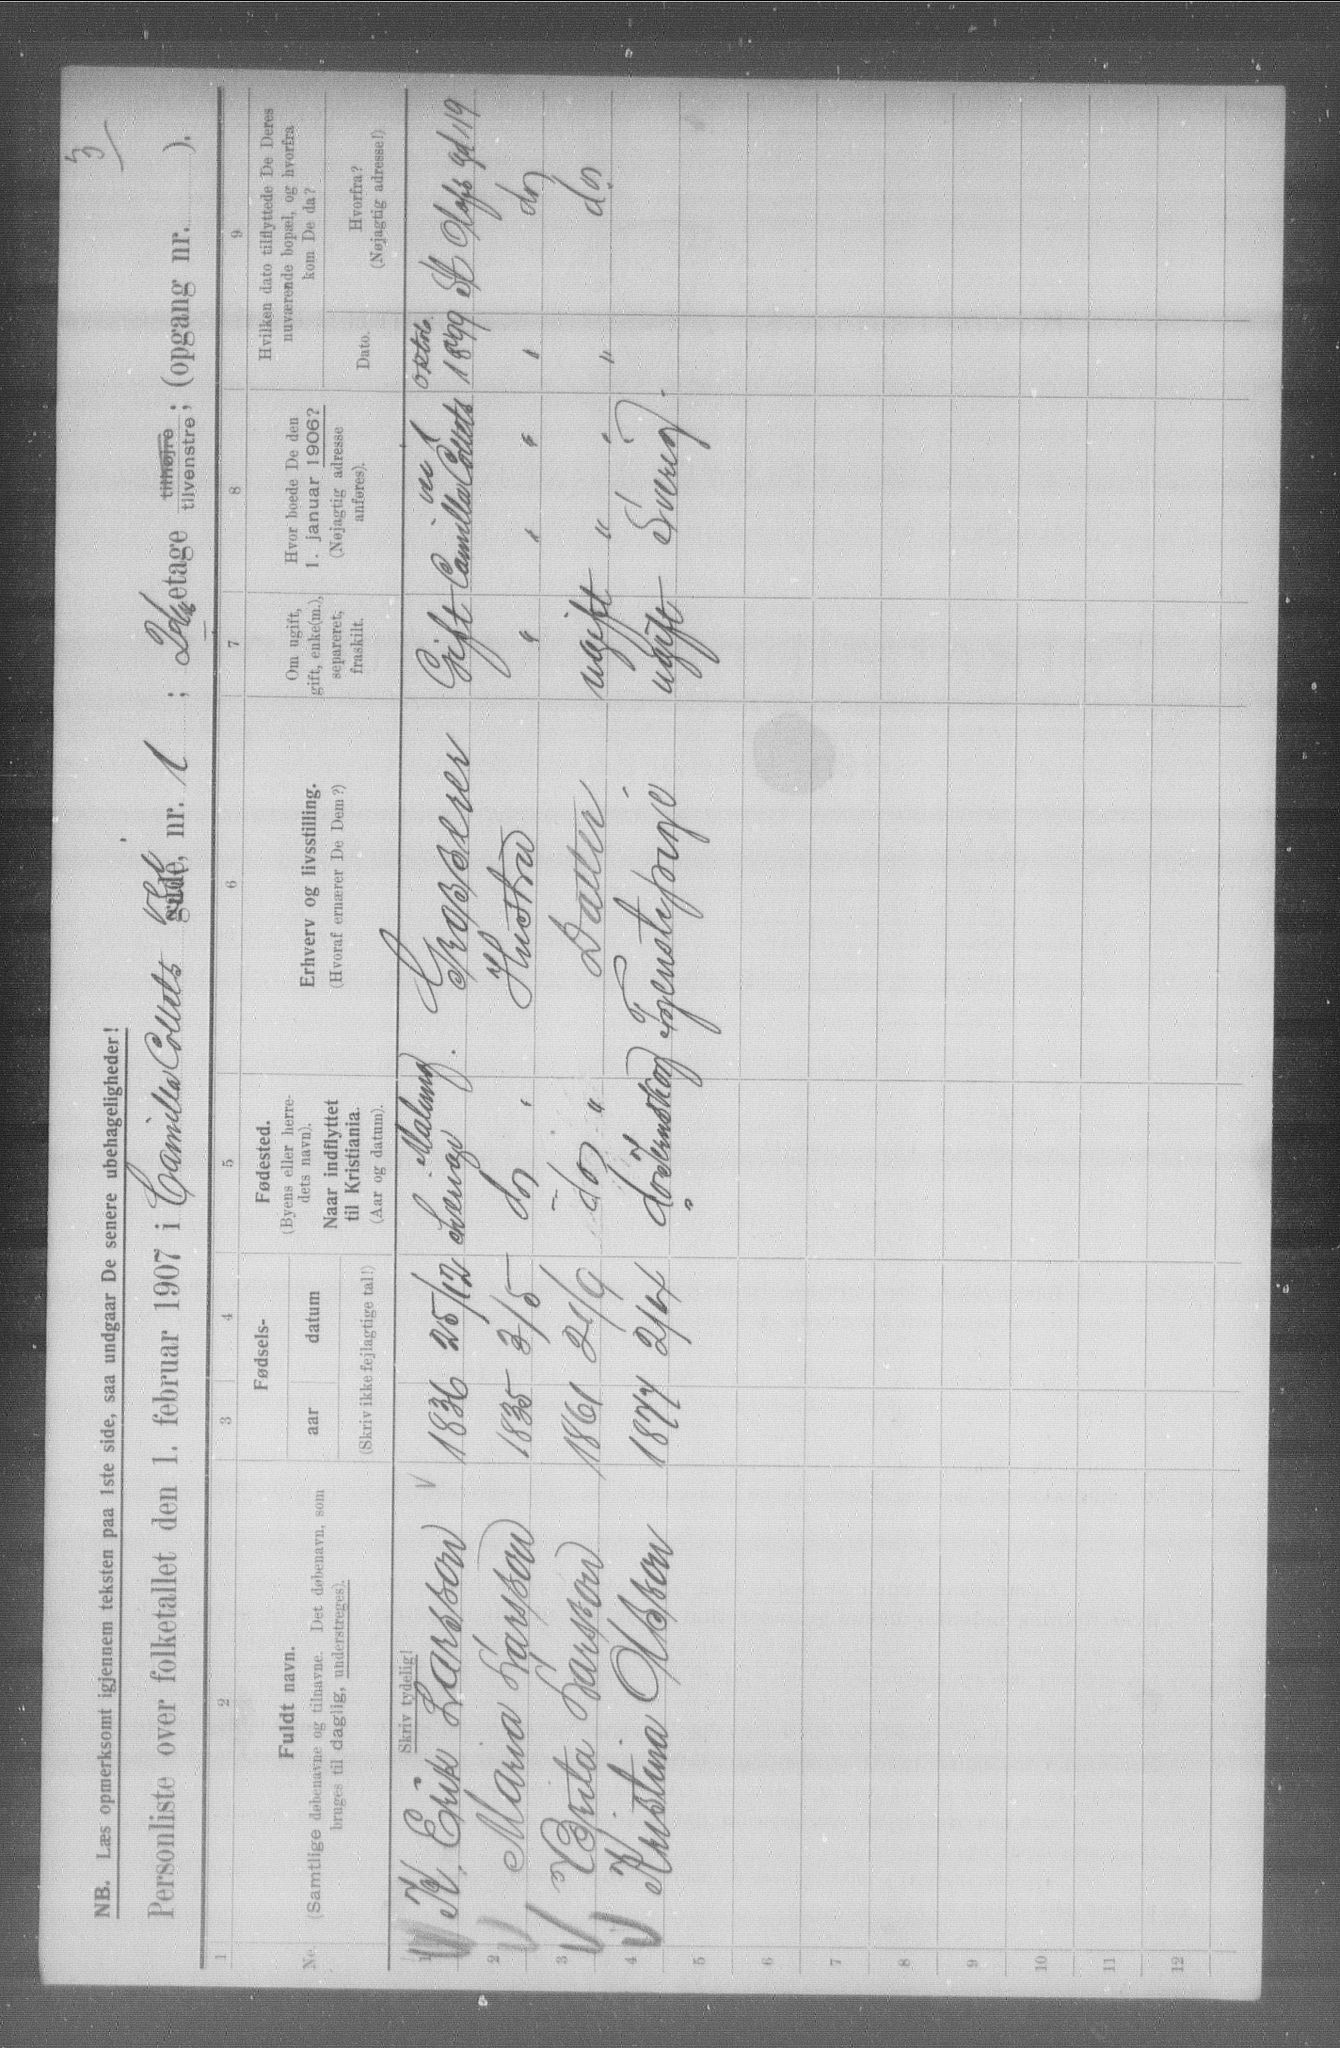 3
NB. Læs opmerksomt igjennem teksten paa 1ste side, saa undgaar De senere ubehageligheder!
Personliste over folketallet den 1. februar 1907 i Camilla Colletts vei gade, nr. 1 ; 2den etage tilhøjre tilvenstre; (opgang nr. ).
1 2 3 4 5 6 7 8 9
Nr.
Fuldt navn.
(Samtlige døbenavne og tilnavne. Det døbenavn, som
bruges til daglig, understreges).
Fødsels-
aar datum
(Skriv ikke fejlagtige tal!)
Fødested.
(Byens eller herre-
dets navn).
Naar indflyttet
til Kristiania.
(Aar og datum).
Erhverv og livsstilling.
(Hvoraf ernærer De Dem?)
Om ugift,
gift, enke(m.),
separeret,
fraskilt.
Hvor boede De den
1. januar 1906?
(Nøjagtig adresse
anføres).
Hvilken dato tilflyttede De Deres
nuværende bopæl, og hvorfra
kom De da?
Dato.
Hvorfra?
(Nøjagtig adresse!)
Skriv tydelig!
1 K. Erik Larsson 1836 25/12 Malung Sverige. Grosserer Gift Camilla Colletts vei 1 oktob. 1899 St Olafs gd 19
2 Maria Larsson 1835 3/5 do " Hustru " " " " do
3 Brita Larsson 1861 21/9 do " Datter ugift " " " do
4 Kristina Olsson 1877 2/4 Tjenestepige ugift Sverig.
5
6
7
8
9
10
11
12